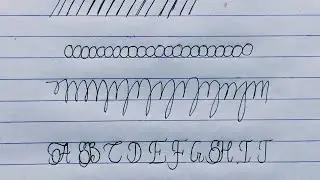 A B C D E F G H I J